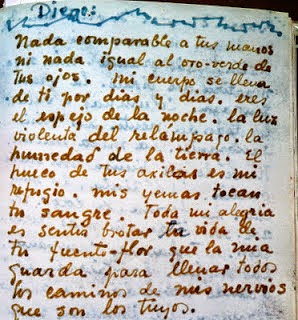 Diego:
Nada comparable a tus manos
ni nada igual al oro-verde de
tus ojos. mi cuerpo se llena
de ti por días y días. eres
el espejo de la noche. la luz
violenta del relampago. la
humedad de la tierra. El
hueco de tus axilas es mi
refugio. mis yemas tocan
tu sangre. Toda mi alegria
es sentir brotar la vida de
tu fuente-flor que la mia
guarda para llenar todos
los caminos de mis nervios
que son los tuyos.